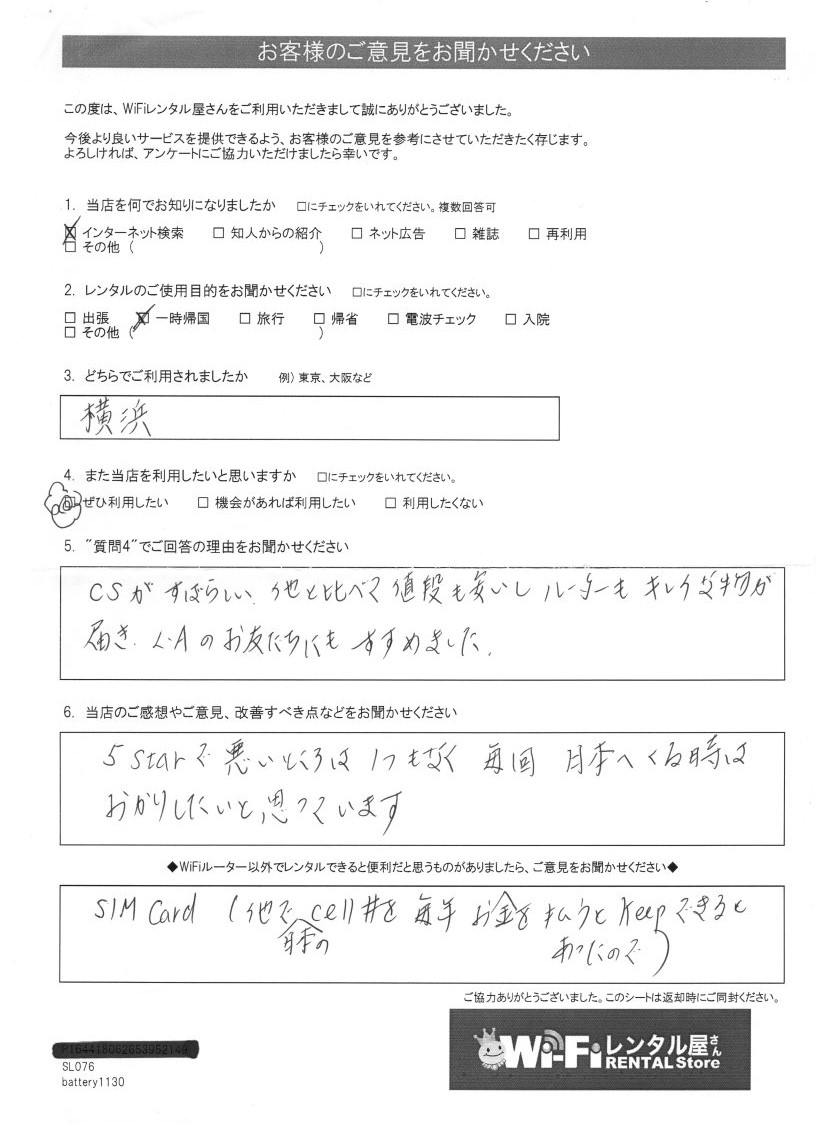 お客様のご意見をお聞かせください
この度は、WiFiレンタル屋さんをご利用いただきまして誠にありがとうございました。
今後より良いサービスを提供できるよう、お客様のご意見を参考にさせていただきたく存じます。
よろしければ、アンケートにご協力いただけましたら幸いです。
1. 当店を何でお知りになりましたか □にチェックをいれてください。複数回答可
☒ インターネット検索 □ 知人からの紹介 □ ネット広告 □ 雑誌 □ 再利用
□ その他 ( )
2. レンタルのご使用目的をお聞かせください □にチェックをいれてください。
□ 出張 ☒ 一時帰国 □ 旅行 □ 帰省 □ 電波チェック □ 入院
□ その他 ( )
3. どちらでご利用されましたか 例) 東京、大阪など
横浜
4. また当店を利用したいと思いますか □にチェックをいれてください。
□ ぜひ利用したい □ 機会があれば利用したい □ 利用したくない
5. "質問4"でご回答の理由をお聞かせください
CSがすばらしい、他と比べて値段も安いしルーターもキレイな物が
届き、L.Aのお友だちにもすすめました。
6. 当店のご感想やご意見、改善すべき点などをお聞かせください
5 starで悪いところは1つもなく 毎回 日本へくる時は
おかりしたいと思っています
◆WiFiルーター以外でレンタルできると便利だと思うものがありましたら、ご意見をお聞かせください◆
SIM Card (他で日本のcell#を毎年お金を払うとKeepできると
あったので)
ご協力ありがとうございました。このシートは返却時にご同封ください。
SL076
battery1130
Wi-Fiレンタル屋さん
RENTAL Store